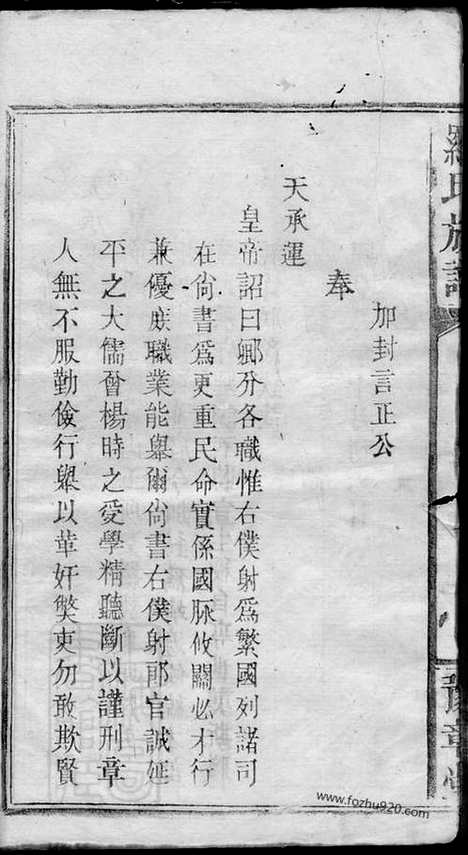 羅氏族譜
豫章堂
加封言正公
奉
天承運
皇帝詔曰鄉分各職惟右僕射爲繁國列諸司
在尚書爲更重民命實係國脉攸關必才行
兼優庶職業能舉爾尚書右僕射郎官誠延
平之大儒曾楊時之愛學精聽斷以謹刑章
人無不服勤儉行舉以革奸獘吏勿敢欺賢
www.fozhu920.com